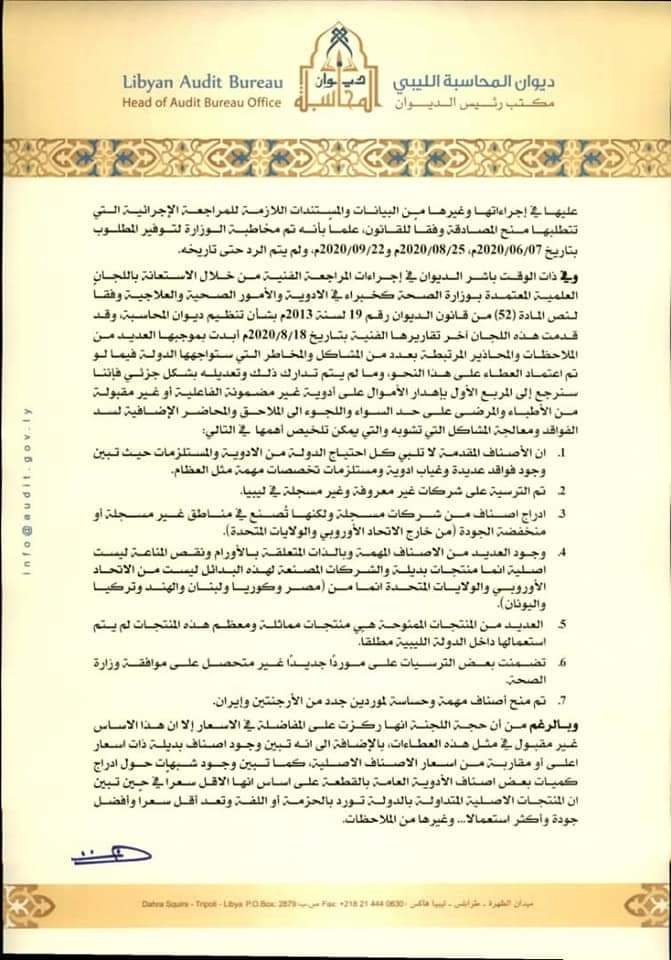 Libyan Audit Bureau
Head of Audit Bureau Office
ديوان المحاسبة
ديوان المحاسبة الليبي
مكتب رئيس الديوان
عليها في إجراءاتها وغيرها من البيانات والمستندات اللازمة للمراجعة الإجرائية التي
تتطلبها منح المصادقة وفقاً للقانون، علماً بأنه تم مخاطبة الوزارة لتوفير المطلوب
بتاريخ 2020/06/07م، 2020/08/25م و2020/09/22م، ولم يتم الرد حتى تاريخه.
وفي ذات الوقت باشر الديوان في إجراءات المراجعة الفنية من خلال الاستعانة باللجان
العلمية المعتمدة بوزارة الصحة كخبراء في الادوية والأمور الصحية والعلاجية وفقا
لنص المادة (52) من قانون الديوان رقم 19 لسنة 2013م بشأن تنظيم ديوان المحاسبة، وقد
قدمت هذه اللجان أخر تقاريرها الفنية بتاريخ 2020/8/18م أبدت بموجبها العديد من
الملاحظات والمحاذير المرتبطة بعدد من المشاكل والمخاطر التي ستواجهها الدولة فيما لو
تم اعتماد العطاء على هذا النحو، وما لم يتم تدارك ذلك وتعديله بشكل جزئي فإننا
سنرجع إلى المربع الأول بإهدار الأموال على أدوية غير مضمونة الفاعلية أو غير مقبولة
من الأطباء والمرضى على حد السواء واللجوء الى الملاحق والمحاضر الإضافية لسد
الفواقد ومعالجة المشاكل التي تشوبه والتي يمكن تلخيص أهمها في التالي:
1. ان الأصناف المقدمة لا تلبي كل احتياج الدولة من الادوية والمستلزمات حيث تبين
وجود فواقد عديدة وغياب ادوية ومستلزمات تخصصات مهمة مثل العظام.
2. تم الترسية على شركات غير معروفة وغير مسجلة في ليبيا.
3. ادراج اصناف من شركات مسجلة ولكنها تُصنع في مناطق غير مسجلة أو
منخفضة الجودة (من خارج الاتحاد الأوروبي والولايات المتحدة).
4. وجود العديد من الاصناف المهمة وبالذات المتعلقة بالأورام ونقص المناعة ليست
اصلية انما منتجات بديلة والشركات المصنعة لهذه البدائل ليست من الاتحاد
الأوروبي والولايات المتحدة انما من (مصر وكوريا ولبنان والهند وتركيا
واليونان).
5. العديد من المنتجات الممنوحة هي منتجات مماثلة ومعظم هذه المنتجات لم يتم
استعمالها داخل الدولة الليبية مطلقا.
6. تضمنت بعض الترسيات على موردًا جديدًا غير متحصل على موافقة وزارة
الصحة.
7. تم منح أصناف مهمة وحساسة لموردين جدد من الأرجنتين وإيران.
وبالرغم من أن حجة اللجنة انها ركزت على المفاضلة في الاسعار إلا ان هذا الاساس
غير مقبول في مثل هذه العطاءات، بالإضافة الى انه تبين وجود اصناف بديلة ذات اسعار
اعلى أو مقاربة من اسعار الاصناف الاصلية، كما تبين وجود شبهات حول ادراج
كميات بعض اصناف الأدوية العامة بالقطعة على اساس انها الاقل سعرا في حين تبين
ان المنتجات الاصلية المتداولة بالدولة تورد بالحزمة أو اللفة وتعد أقل سعرا وأفضل
جودة وأكثر استعمالا... وغيرها من الملاحظات.
info@audit.gov.ly
Dahra Squire - Tripoli - Libya P.O.Box: 2879 ص.ب Fax: +218 21 444 0830 ميدان الظهرة - طرابلس - ليبيا فاكس